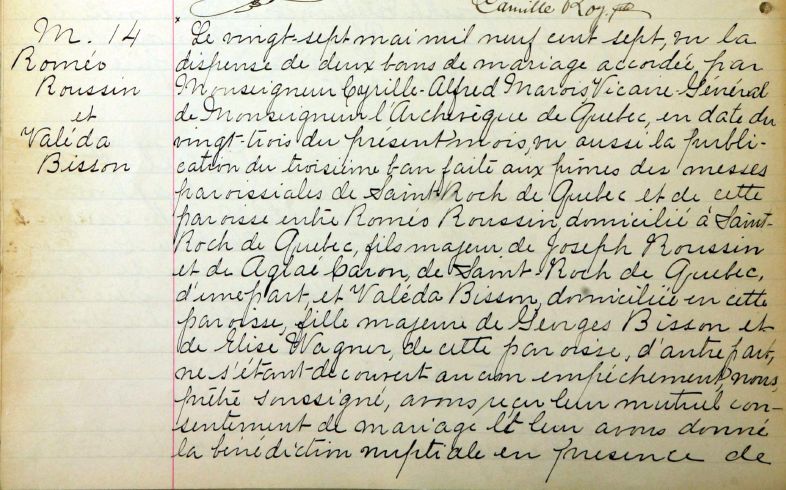 Camille Roy, ptre
M. 14
Roméo
Roussin
et
Valéda
Bisson
Le vingt-sept mai mil neuf cent sept, vu la
dispense de deux bans de mariage accordée par
Monseigneur Cyrille-Alfred Marois Vicaire-Général
de Monseigneur l'Archevêque de Quebec, en date du
vingt-trois du présent mois, vu aussi la publi-
cation du troisième ban faite aux prônes des messes
paroissiales de Saint-Roch de Quebec et de cette
paroisse entre Roméo Roussin, domicilié à Saint-
Roch de Quebec, fils majeur de Joseph Roussin
et de Aglaé Caron, de Saint-Roch de Quebec,
d'une part, et Valéda Bisson, domiciliée en cette
paroisse, fille majeure de Georges Bisson et
de Elise Wagner, de cette paroisse, d'autre part,
ne s'étant découvert aucun empêchement, nous,
prêtre soussigné, avons reçu leur mutuel con-
sentement de mariage et leur avons donné
la bénédiction nuptiale en présence de